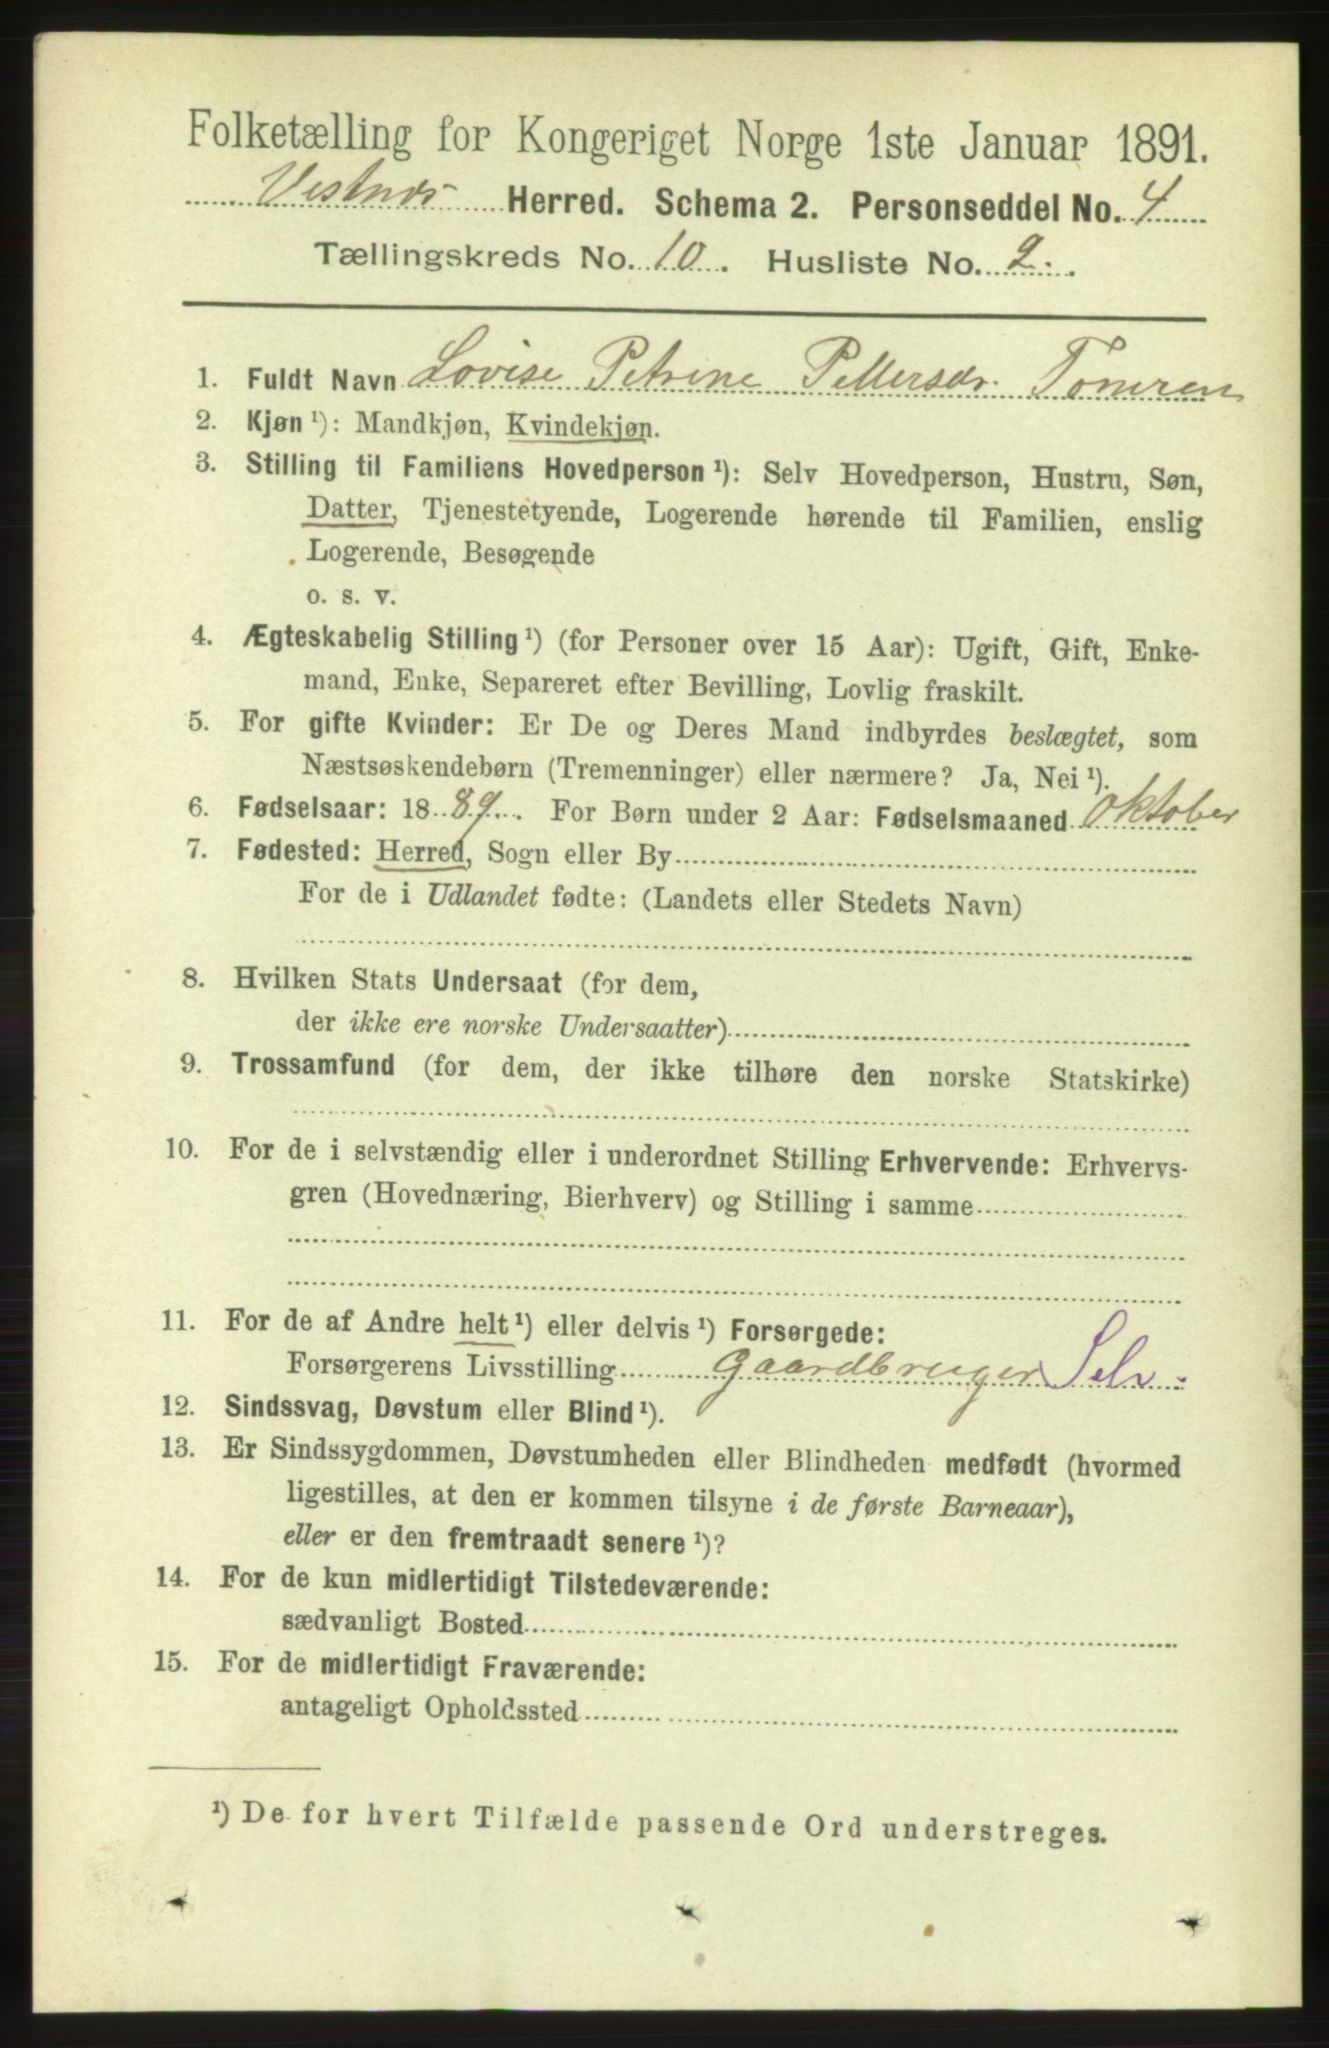 Folketælling for Kongeriget Norge 1ste Januar 1891.
Vestnæs Herred. Schema 2. Personseddel No. 4
Tællingskreds No. 10. Husliste No. 2.
1. Fuldt Navn Lovise Petrine Pettersdr. Tomren
2. Kjøn ¹): Mandkjøn, Kvindekjøn.
3. Stilling til Familiens Hovedperson ¹): Selv Hovedperson, Hustru, Søn,
Datter, Tjenestetyende, Logerende hørende til Familien, enslig
Logerende, Besøgende
o. s. v.
4. Ægteskabelig Stilling ¹) (for Personer over 15 Aar): Ugift, Gift, Enke-
mand, Enke, Separeret efter Bevilling, Lovlig fraskilt.
5. For gifte Kvinder: Er De og Deres Mand indbyrdes beslægtet, som
Næstsøskendebørn (Tremenninger) eller nærmere? Ja, Nei ¹).
6. Fødselsaar: 18 89. For Børn under 2 Aar: Fødselsmaaned Oktober
7. Fødested: Herred, Sogn eller By
For de i Udlandet fødte: (Landets eller Stedets Navn)
8. Hvilken Stats Undersaat (for dem,
der ikke ere norske Undersaatter)
9. Trossamfund (for dem, der ikke tilhøre den norske Statskirke)
10. For de i selvstændig eller i underordnet Stilling Erhvervende: Erhvervs-
gren (Hovednæring, Bierhverv) og Stilling i samme
11. For de af Andre helt ¹) eller delvis ¹) Forsørgede:
Forsørgerens Livsstilling Gaardbruger Selv.
12. Sindssvag, Døvstum eller Blind ¹).
13. Er Sindssygdommen, Døvstumheden eller Blindheden medfødt (hvormed
ligestilles, at den er kommen tilsyne i de første Barneaar),
eller er den fremtraadt senere ¹)?
14. For de kun midlertidigt Tilstedeværende:
sædvanligt Bosted
15. For de midlertidigt Fraværende:
antageligt Opholdssted
¹) De for hvert Tilfælde passende Ord understreges.